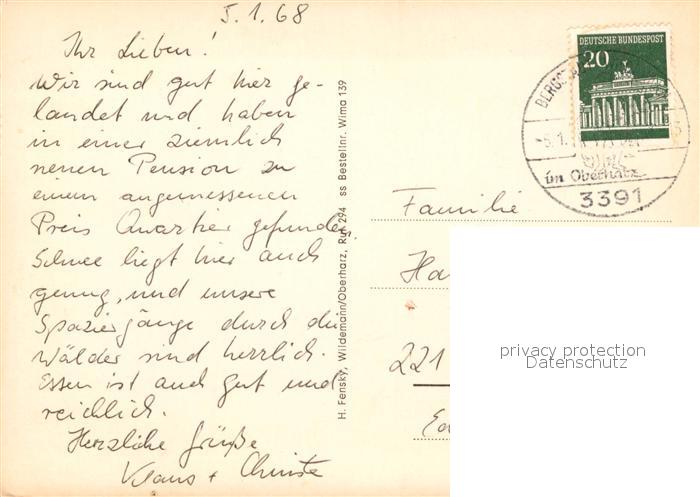 5.1.68
Ihr Lieben!
Wir sind gut hier ge-
landet und haben
in einer ziemlich
neuen Pension zu
einem angemessenen
Preis Quartier gefunden.
Schnee liegt hier auch
genug, und unsere
Spaziergänge durch die
Wälder sind herrlich.
Essen ist auch gut und
reichlich.
Herzliche Grüße
Klaus + Christa
H. Fensky, Wildemann/Oberharz, Ruf 294 ss Bestellnr. Wima 139
DEUTSCHE BUNDESPOST
20
BERGST
-5.1.
im Oberharz
3391
Familie
Ha
221
privacy protection
Datenschutz